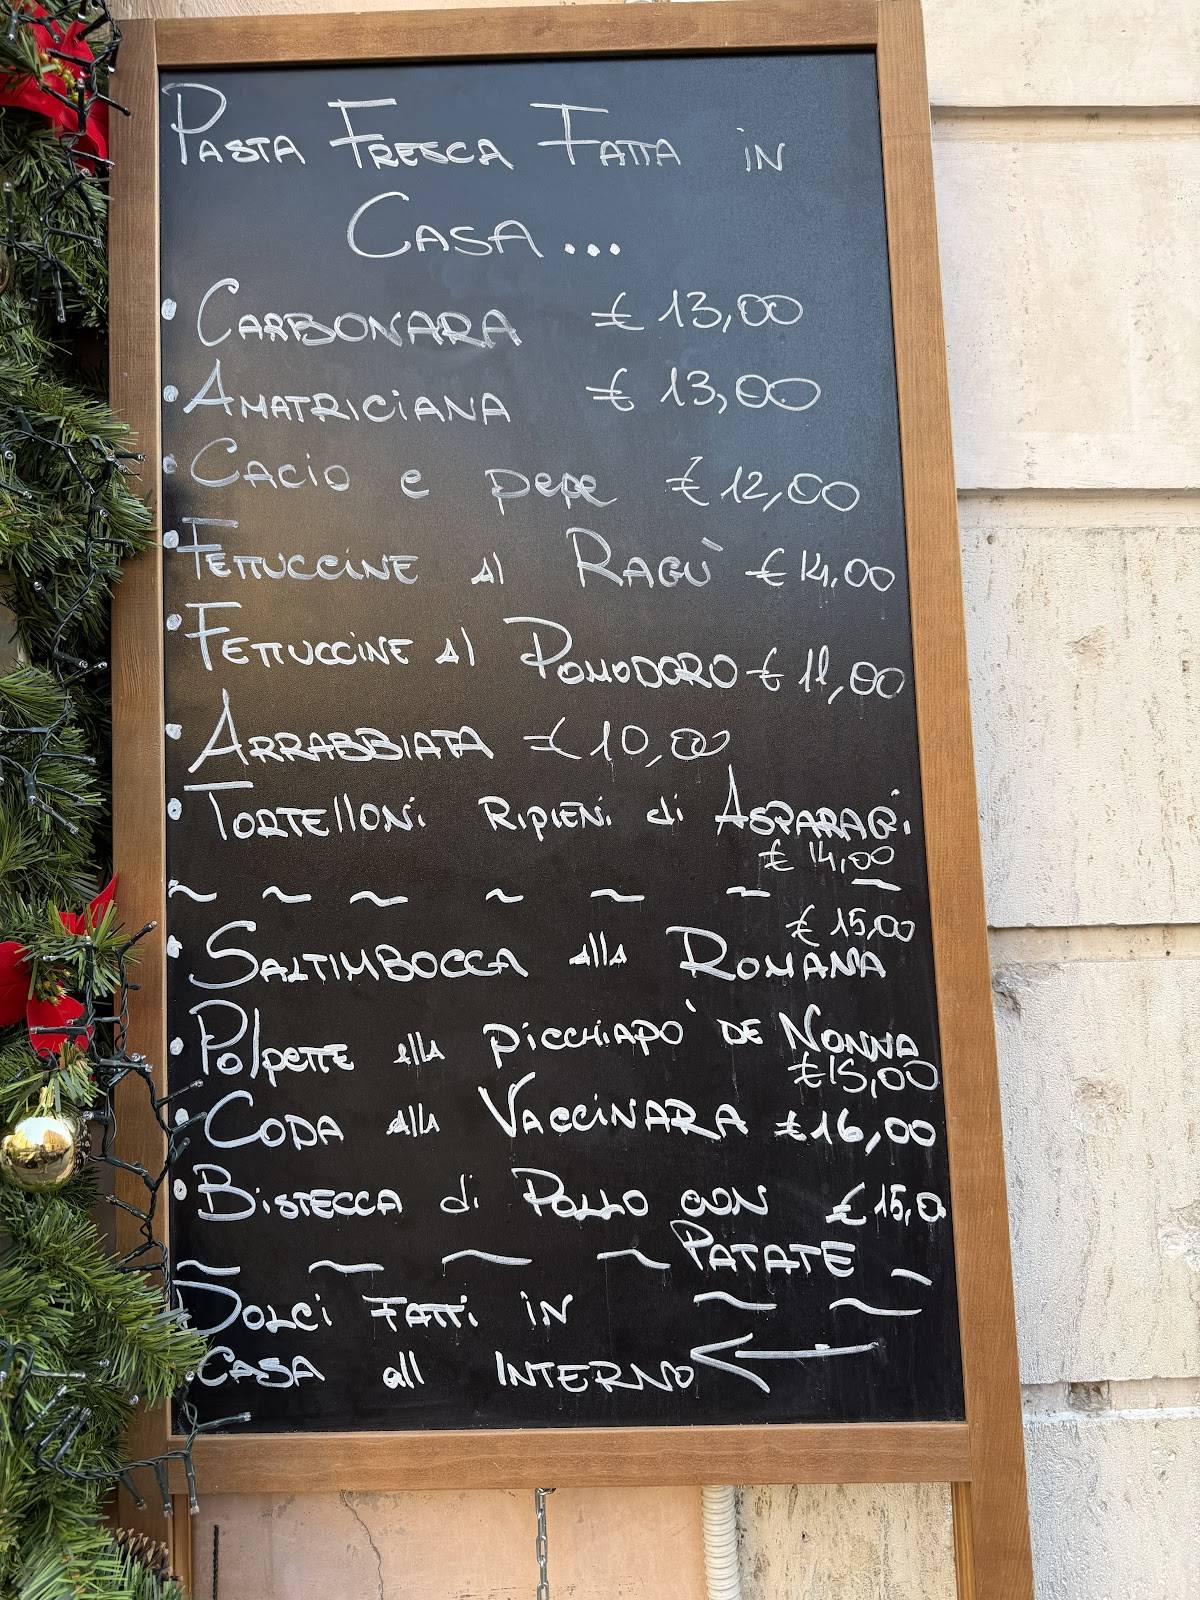 Pasta Fresca Fatta in
Casa...
• Carbonara € 13,00
• Amatriciana € 13,00
• Cacio e pepe € 12,00
• Fettuccine al Ragù € 14,00
• Fettuccine al Pomodoro € 11,00
• Arrabbiata € 10,00
• Tortelloni ripieni di Asparagi
€ 14,00
~ ~ ~ ~ ~ ~ ~
€ 15,00
• Saltimbocca alla Romana
• Polpette alla picchiapò de Nonna
€ 15,00
• Coda alla Vaccinara € 16,00
• Bistecca di Pollo con € 15,0
Patate
~ ~ ~ ~ ~
Dolci fatti in ~ ~
casa all interno ←